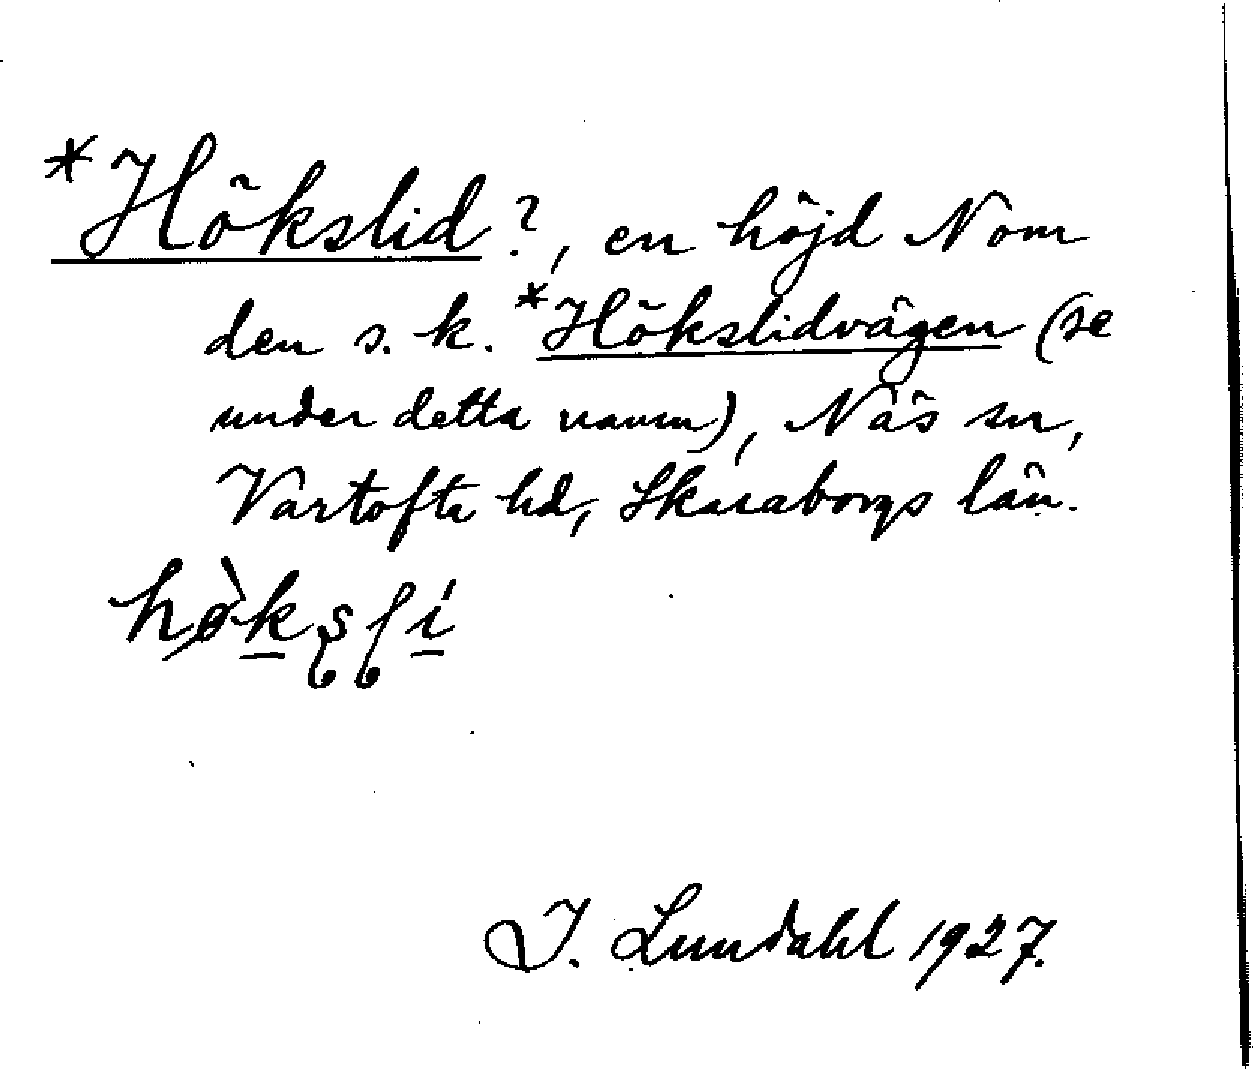 *Hökslid?, en höjd N om
den s. k. *Hökslidvägen (se
under detta namn), Näs sn,
Vartofta hd, Skaraborgs län.
I. Lundahl 1927.